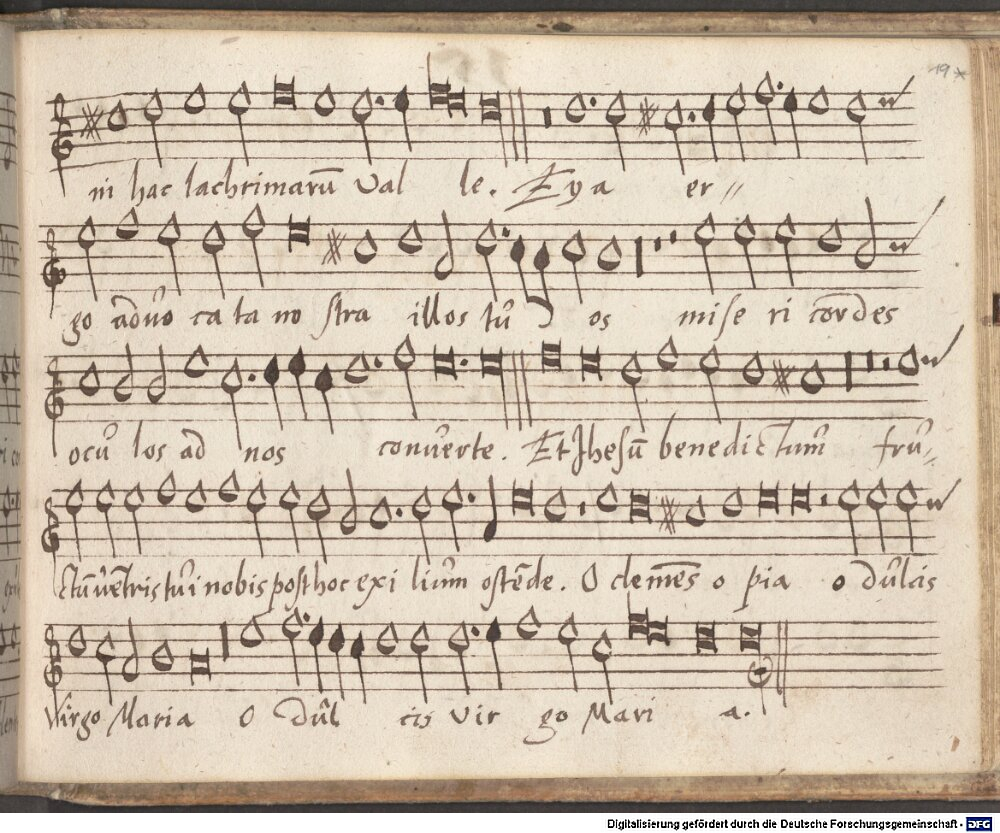 19
ni hac lachrimarū val le. Eya er〃
go advo ca ta no stra illos tu os mise ri cordes
ocu los ad nos converte. Et Jhesū benedictum fru〃
ctū vētris tui nobis post hoc exi lium ostēde. O clemēs o pia o dulcis
Virgo Maria O dul cis vir go Mari a.
Digitalisierung gefördert durch die Deutsche Forschungsgemeinschaft - DFG